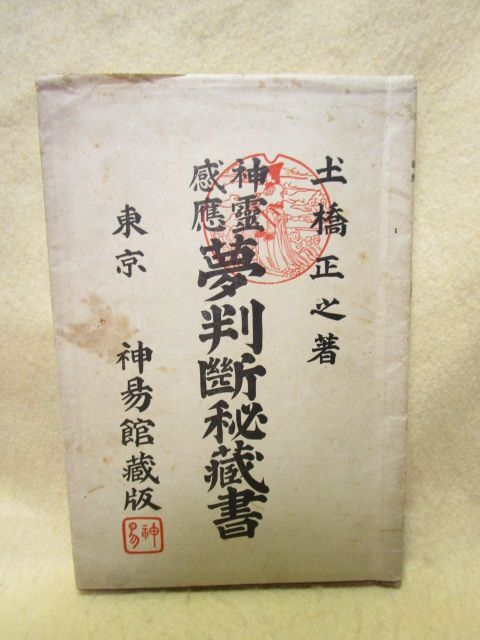 土橋正之著
神靈
感應
夢判斷秘藏書
東京
神易館藏版
神易